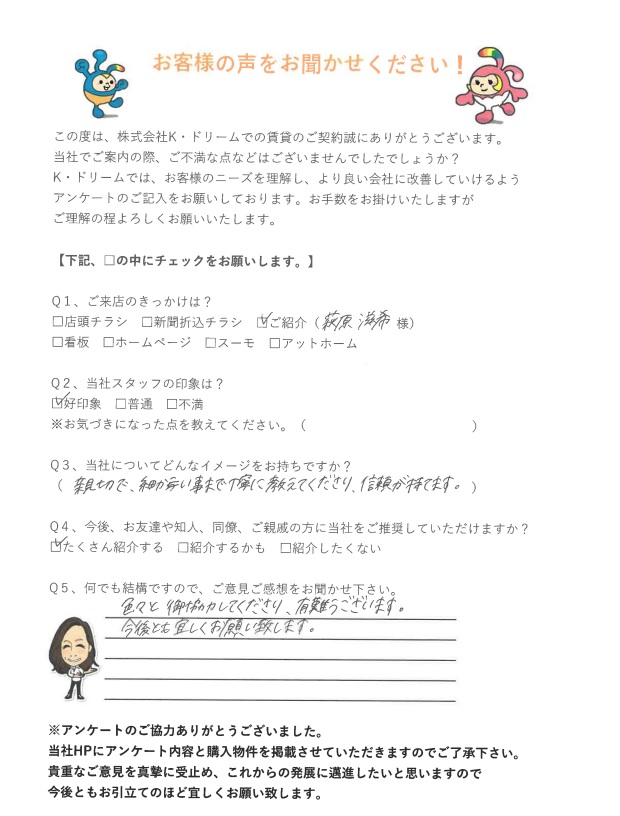 お客様の声をお聞かせください！
この度は、株式会社K・ドリームでの賃貸のご契約誠にありがとうございます。
当社でご案内の際、ご不満な点などはございませんでしたでしょうか？
K・ドリームでは、お客様のニーズを理解し、より良い会社に改善していけるよう
アンケートのご記入をお願いしております。お手数をお掛けいたしますが
ご理解の程よろしくお願いいたします。
【下記、□の中にチェックをお願いします。】
Q1、ご来店のきっかけは？
□店頭チラシ　□新聞折込チラシ　☑ご紹介（萩原 海希 様）
□看板　□ホームページ　□スーモ　□アットホーム
Q2、当社スタッフの印象は？
☑好印象　□普通　□不満
※お気づきになった点を教えてください。（　　　　　　　　　　　　　）
Q3、当社についてどんなイメージをお持ちですか？
（親切で、細かい事まで丁寧に教えてくださり、信頼が持てます。）
Q4、今後、お友達や知人、同僚、ご親戚の方に当社をご推奨していただけますか？
☑たくさん紹介する　□紹介するかも　□紹介したくない
Q5、何でも結構ですので、ご意見ご感想をお聞かせ下さい。
色々と御協力してくださり、有難うございます。
今後とも宜しくお願い致します。
※アンケートのご協力ありがとうございました。
当社HPにアンケート内容と購入物件を掲載させていただきますのでご了承下さい。
貴重なご意見を真摯に受止め、これからの発展に邁進したいと思いますので
今後ともお引立てのほど宜しくお願い致します。